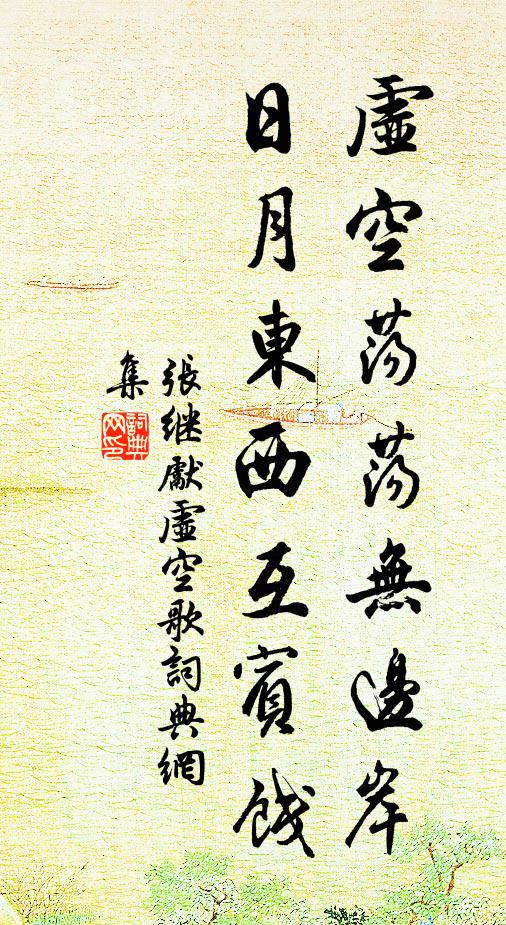 虛空荡荡無邊岸
日月東西互賓餞
張继獻虛空歌詞典網
集
詞典